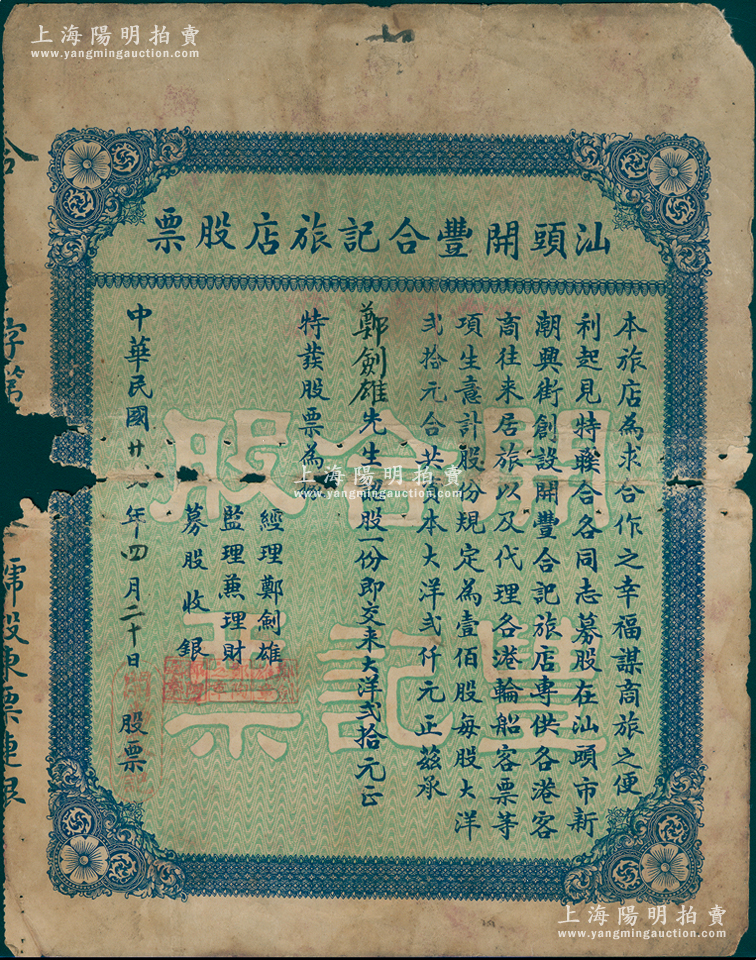 上海陽明拍賣
www.yangmingauction.com
汕頭開豐合記旅店股票
本旅店為求合作之幸福謀商旅之便
利起見特聯合各同志募股在汕頭市新
潮興街創設開豐合記旅店專供各港客
商往來居旅以及代理各港輪船客票等
項生意計股份規定為壹佰股每股大洋
弍拾元合共資本大洋弍仟元正茲承
鄭劍雄先生認股一份即交來大洋弍拾元正
特發股票為
經理鄭劍雄
監理蕪理財
募股收銀
中華民國廿九年四月二十日
股票
開合股
豐記票
上海陽明拍賣
www.yangmingauction.com
合
字第
號股東票連根
上海陽明拍賣
www.yangmingauction.com